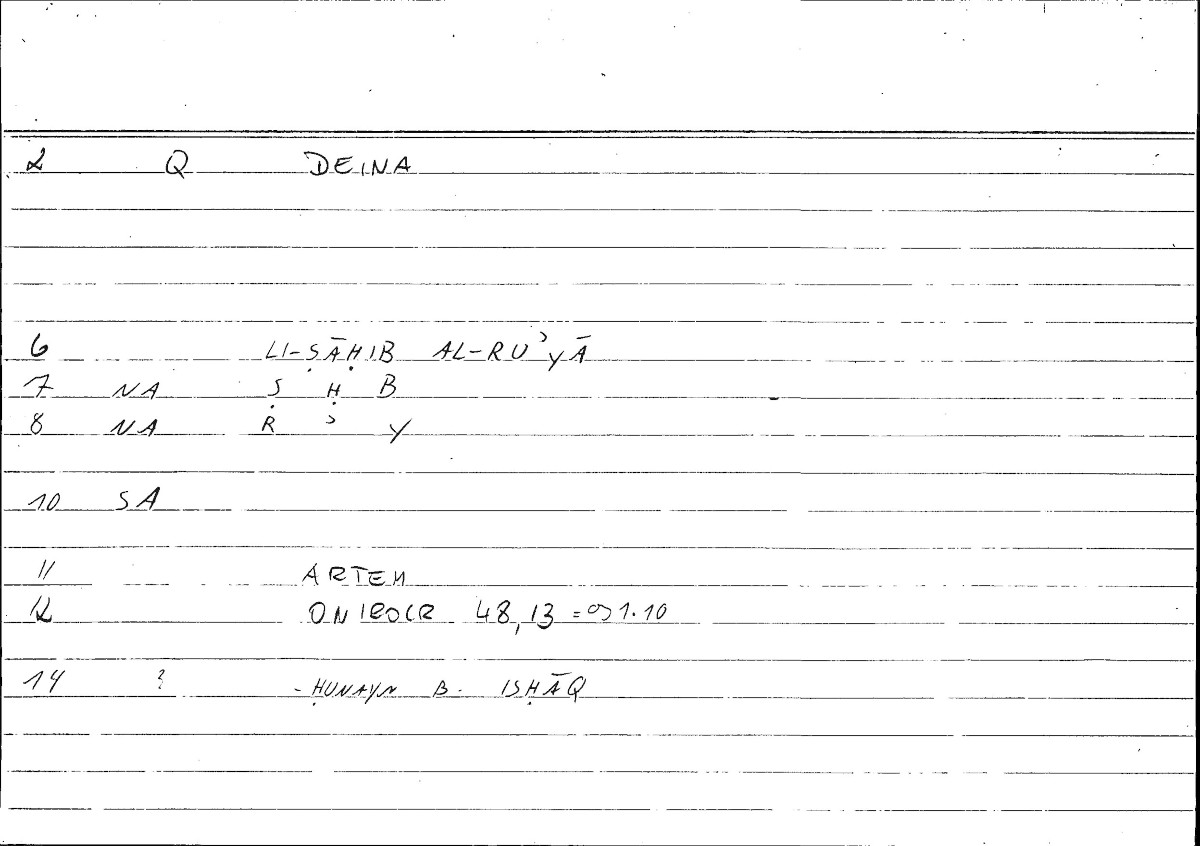 2 Q DEINA
6 LI-ṢĀḤIB AL-RUʾYĀ
7 NA Ṣ Ḥ B
8 NA R ʾ Y
10 SA
11 ARTEM
12 ONIROCR 48,13 = 1.10
14 ? -ḤUNAYN B. ISḤĀQ